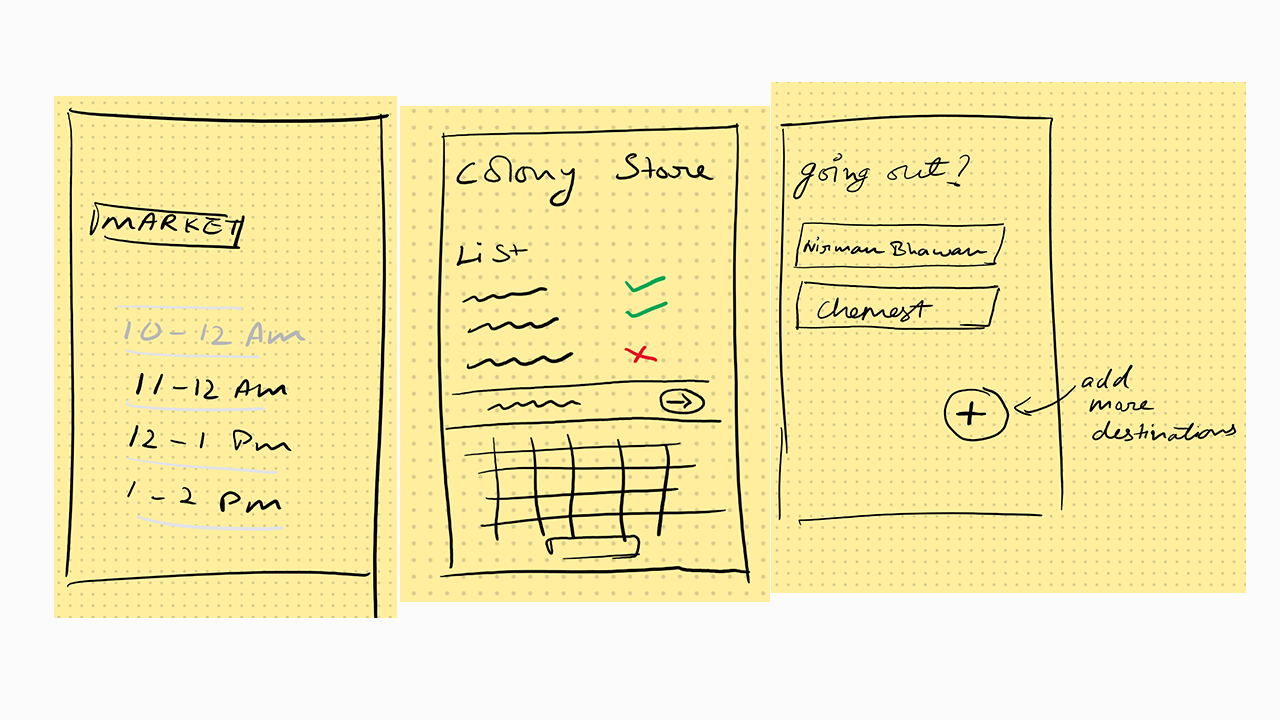 MARKET
10-12 Am
11-12 Am
12-1 Pm
1-2 Pm
Colony Store
List
going out?
Nirman Bhawan
Chemest
+
add
more
destinations